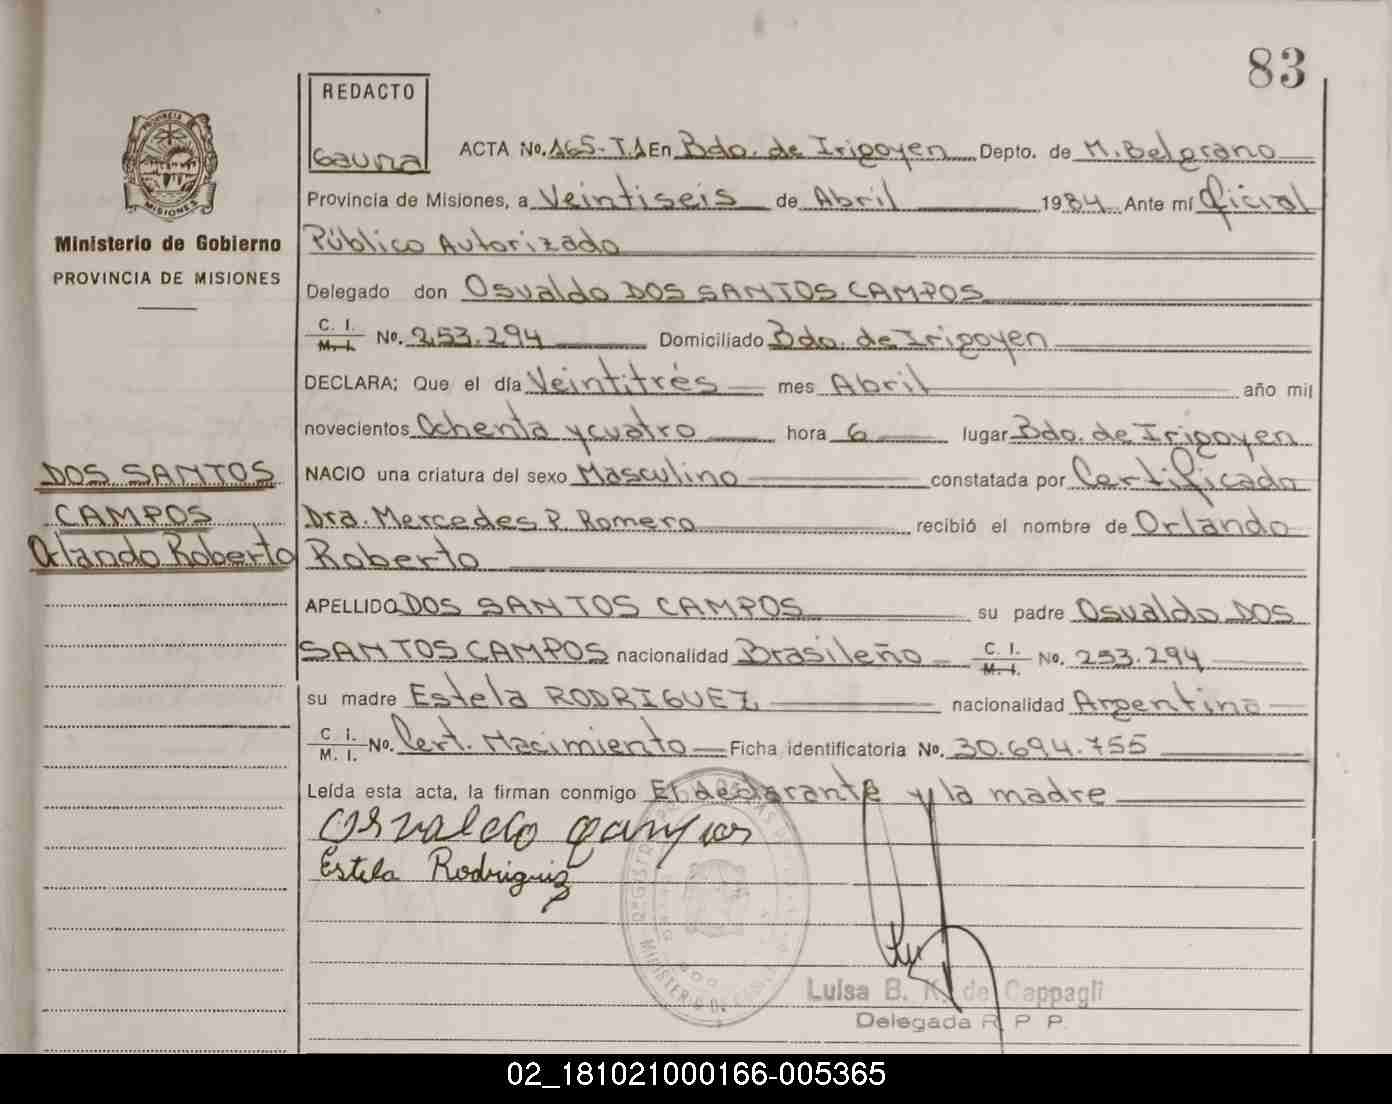 83
REDACTO
Gauna
ACTA No. 165-T.1 En Bdo. de Irigoyen Depto. de M. Belgrano
Provincia de Misiones, a Veintiseis de Abril 1984 Ante mí Oficial
Público Autorizado
Delegado don Osvaldo DOS SANTOS CAMPOS
C. I. M. I. No. 253.294 Domiciliado Bdo. de Irigoyen
DECLARA; Que el día Veintitrés mes Abril año mil
novecientos Ochenta y cuatro hora 6 lugar Bdo. de Irigoyen
NACIO una criatura del sexo Masculino constatada por Certificado
Dra. Mercedes P. Romero recibió el nombre de Orlando
Roberto
APELLIDO DOS SANTOS CAMPOS su padre Osvaldo DOS
SANTOS CAMPOS nacionalidad Brasileño C. I. M. I. No. 253.294
su madre Estela RODRIGUEZ nacionalidad Argentina
C. I. M. I. No. Cert. Nacimiento Ficha identificatoria No. 30.694.755
Leída esta acta, la firman conmigo El declarante y la madre
Osvaldo Campos
Estela Rodriguez
Luisa B. K. de Cappagli
Delegada R. P. P.
PROVINCIA DE MISIONES
Ministerio de Gobierno
PROVINCIA DE MISIONES
DOS SANTOS
CAMPOS
Orlando Roberto
02_181021000166-005365